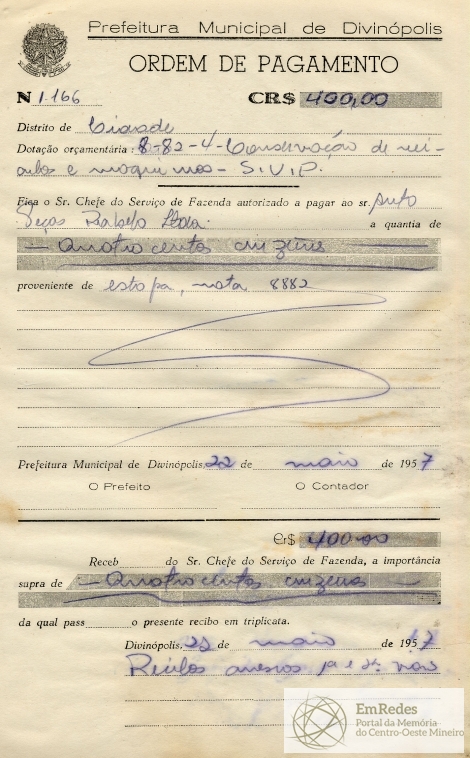 Prefeitura Municipal de Divinópolis
ORDEM DE PAGAMENTO
N 1.166 CR$ 400,00
Distrito de Cidade
Dotação orçamentária: 8-82-4-Conservação de vei-
culos e maquinas - S.V.P.
Fica o Sr. Chefe do Serviço de Fazenda autorizado a pagar ao sr. Auto
Peças Rabelo Ltda. a quantia de
— Quatrocentos cruzeiros —
proveniente de estopa, nota 8882
Prefeitura Municipal de Divinópolis, 22 de maio de 1957
O Prefeito O Contador
Cr$ 400,00
Receb do Sr. Chefe do Serviço de Fazenda, a importância
supra de — Quatrocentos cruzeiros —
da qual pass o presente recibo em triplicata.
Divinópolis, 22 de maio de 1957
Recibos anexos 1ª e 2ª vias
EmRedes
Portal da Memória
do Centro-Oeste Mineiro